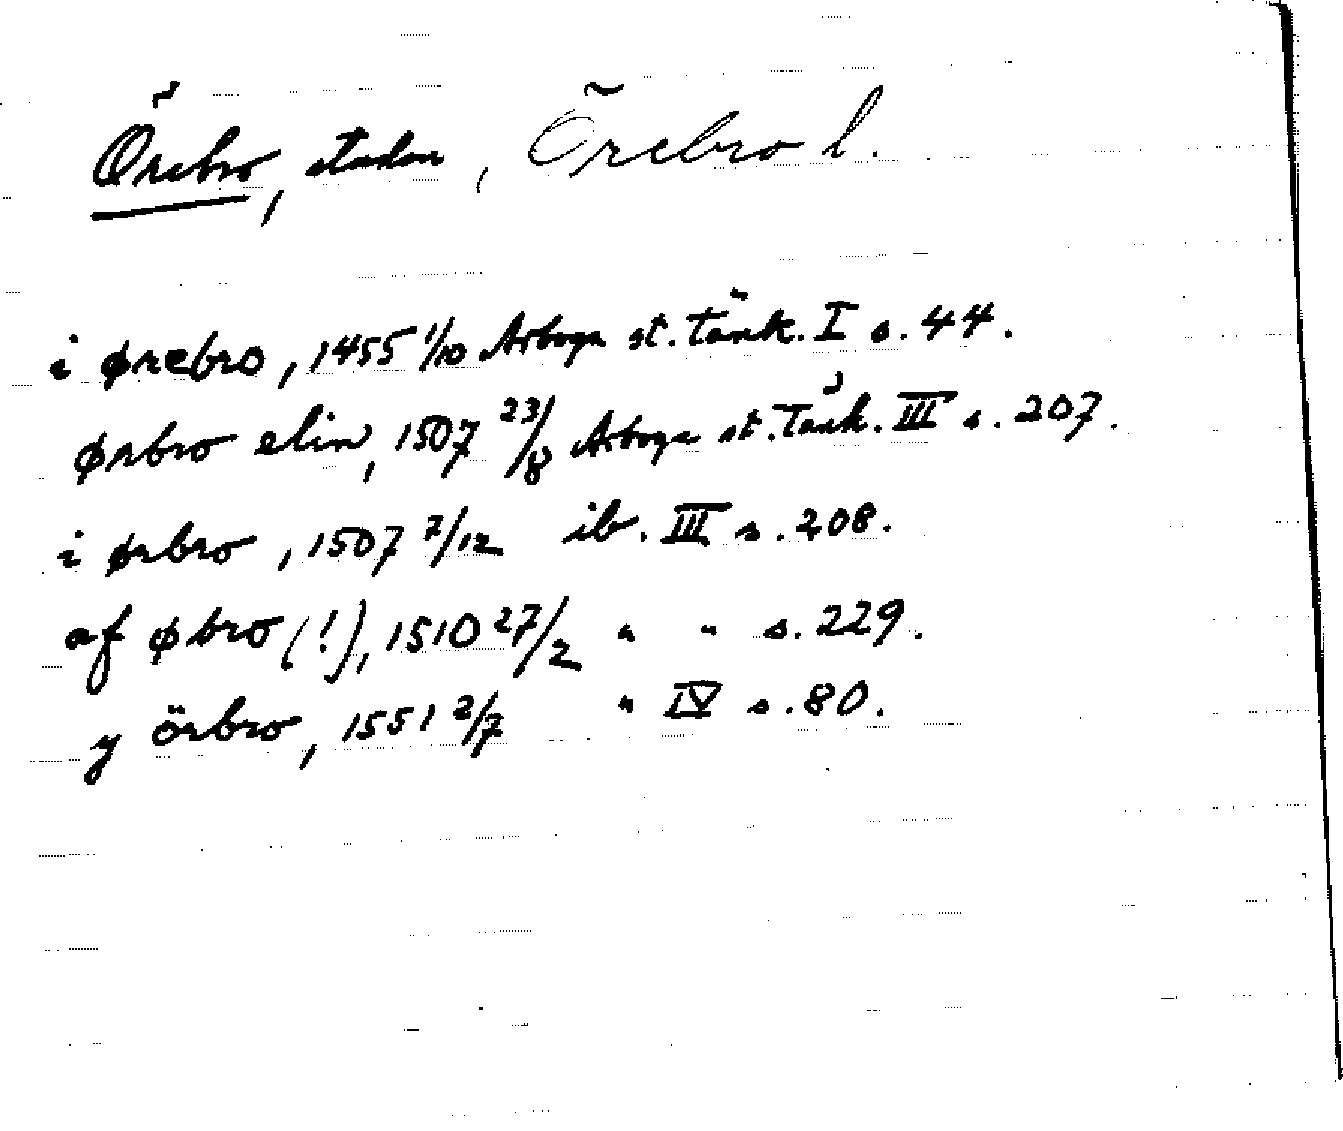 Örebro, staden, Örebro l.
i ørebro, 1455 1/10 Arboga st. tänk. I s. 44.
ørbro elin, 1507 23/8 Arboga st. tänk. III s. 207.
i ørbro, 1507 7/12 ib. III s. 208.
af øbro (!), 1510 27/2 " " s. 229.
y örbro, 1551 2/7 " IV s. 80.